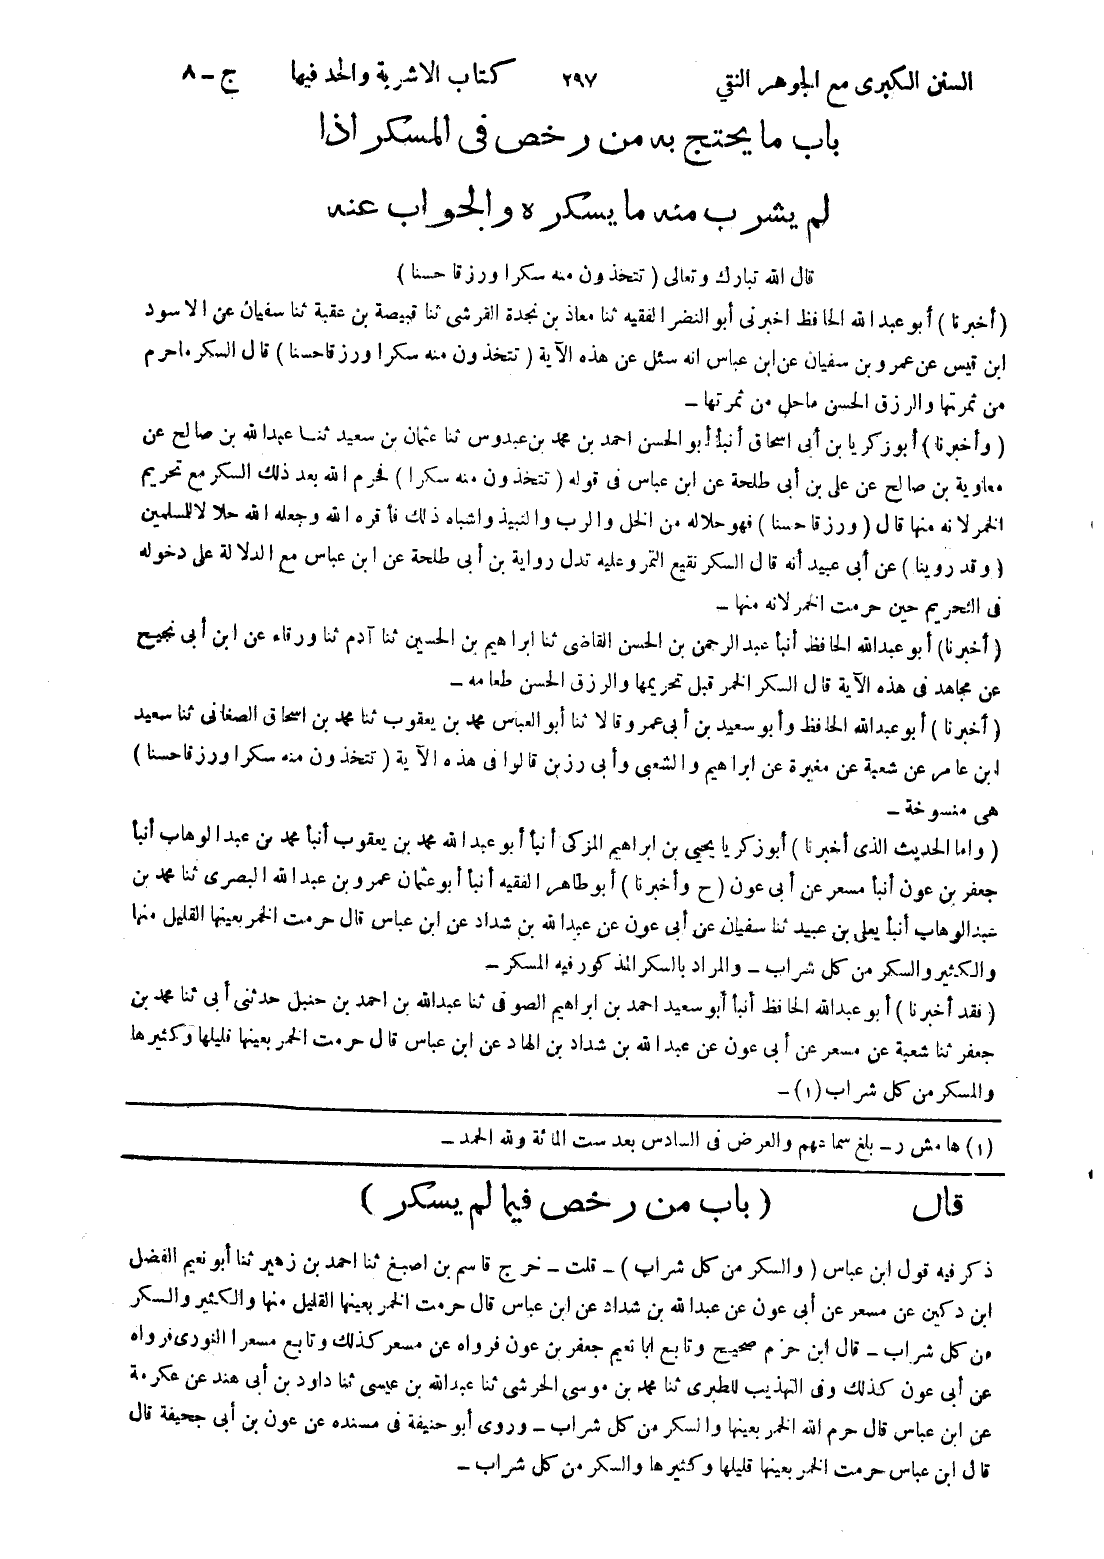 السنن الكبرى مع الجوهر النقي ٢٩٧ كتاب الاشربة والحد فيها ج - ٨
باب ما يحتج به من رخص فى المسكر اذا
لم يشرب منه ما يسكره والجواب عنه
قال الله تبارك وتعالى ( تتخذون منه سكرا ورزقا حسنا )
( أخبرنا ) أبو عبد الله الحافظ اخبرنى أبو النضر الفقيه ثنا معاذ بن نجدة القرشى ثنا قبيصة بن عقبة ثنا سفيان عن الاسود
ابن قيس عن عمرو بن سفيان عن ابن عباس انه سئل عن هذه الآية ( تتخذون منه سكرا ورزقا حسنا ) قال السكر ماحرم
من ثمرتها والرزق الحسن ماحل من ثمرتها -
( وأخبرنا ) أبو زكريا بن أبى اسحاق أنبأ أبو الحسن احمد بن محمد بن عبدوس ثنا عثمان بن سعيد ثنا عبدالله بن صالح عن
معاوية بن صالح عن على بن أبى طلحة عن ابن عباس فى قوله ( تتخذون منه سكرا ) فحرم الله بعد ذلك السكر مع تحريم
الخمر لانه منها قال ( ورزقا حسنا ) فهو حلاله من الخل والرب والنبيذ واشباه ذلك فأقره الله وجعله الله حلالا للمسلمين
( وقد روينا ) عن أبى عبيد أنه قال السكر نقيع التمر وعليه تدل رواية بن أبى طلحة عن ابن عباس مع الدلالة على دخوله
فى التحريم حين حرمت الخمر لانه منها -
( أخبرنا ) أبو عبدالله الحافظ أنبأ عبدالرحمن بن الحسن القاضى ثنا ابراهيم بن الحسين ثنا آدم ثنا ورقاء عن ابن أبى نجيح
عن مجاهد فى هذه الآية قال السكر الخمر قبل تحريمها والرزق الحسن طعامه -
( أخبرنا ) أبو عبدالله الحافظ وأبو سعيد بن أبى عمرو قالا ثنا أبو العباس محمد بن يعقوب ثنا محمد بن اسحاق الصغانى ثنا سعيد
ابن عامر عن شعبة عن مغيرة عن ابراهيم والشعبى وأبى رزين قالوا فى هذه الآية ( تتخذون منه سكرا ورزقا حسنا )
هى منسوخة -
( واما الحديث الذى أخبرنا ) أبو زكريا يحيى بن ابراهيم المزكى أنبأ أبو عبد الله محمد بن يعقوب أنبأ محمد بن عبد الوهاب أنبأ
جعفر بن عون أنبأ مسعر عن أبى عون ( ح وأخبرنا ) أبو طاهر الفقيه أنبأ أبو عثمان عمرو بن عبد الله البصرى ثنا محمد بن
عبد الوهاب أنبأ يعلى بن عبيد ثنا سفيان عن أبى عون عن عبدالله بن شداد عن ابن عباس قال حرمت الخمر بعينها القليل منها
والكثير والسكر من كل شراب - والمراد بالسكر المذكور فيه المسكر -
( فقد أخبرنا ) أبو عبدالله الحافظ أنبأ أبو سعيد احمد بن ابراهيم الصوفى ثنا عبدالله بن احمد بن حنبل حدثنى أبى ثنا محمد بن
جعفر ثنا شعبة عن مسعر عن أبى عون عن عبد الله بن شداد بن الهاد عن ابن عباس قال حرمت الخمر بعينها قليلها وكثيرها
والمسكر من كل شراب (١) -
(١) هامش ر - بلغ سماعهم والعرض فى السادس بعد ست المائة ولله الحمد -
قال ( باب من رخص فيما لم يسكر )
ذكر فيه قول ابن عباس ( والسكر من كل شراب ) - قلت - خرج قاسم بن اصبغ ثنا احمد بن زهير ثنا أبو نعيم الفضل
ابن دكين عن مسعر عن أبى عون عن عبدالله بن شداد عن ابن عباس قال حرمت الخمر بعينها القليل منها والكثير والسكر
من كل شراب - قال ابن حزم صحيح وتابع ابا نعيم جعفر بن عون فرواه عن مسعر كذلك وتابع مسعرا الثورى فرواه
عن أبى عون كذلك وفى التهذيب للطبرى ثنا محمد بن موسى الحرشى ثنا عبدالله بن عيسى ثنا داود بن أبى هند عن عكرمة
عن ابن عباس قال حرم الله الخمر بعينها والسكر من كل شراب - وروى أبو حنيفة فى مسنده عن عون بن أبى جحيفة قال
قال ابن عباس حرمت الخمر بعينها قليلها وكثيرها والسكر من كل شراب -